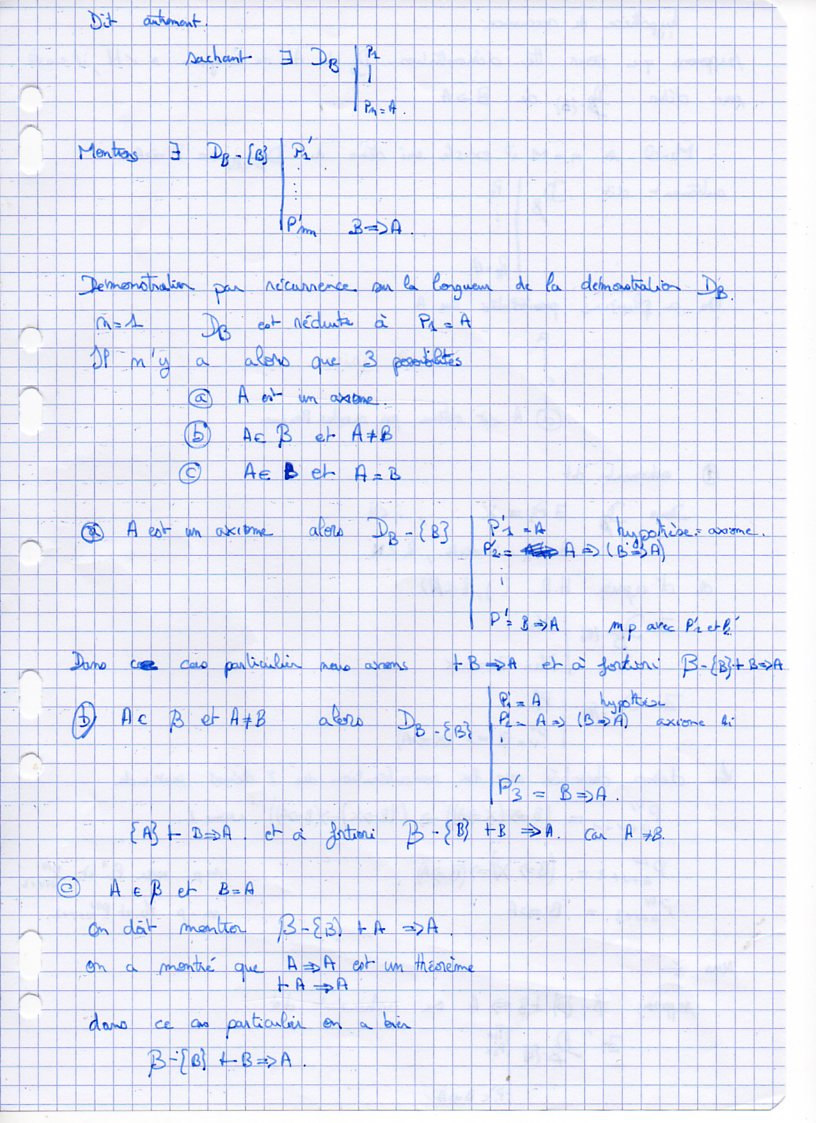 Dit autrement.
sachant ∃ D_B | P1
|
Pn = A.
Montrons ∃ D_β-{B} | P'1
⋮
P'm B ⇒ A.
Démonstration par récurrence sur la longueur de la démonstration D_B.
n=1 D_B est réduite à P1 = A
Il n'y a alors que 3 possibilités
(a) A est un axiome.
(b) A ∈ β et A ≠ B
(c) A ∈ B et A = B
(a) A est un axiome alors D_B-{B} | P'1 = A hypothèse = axiome.
P'2 = A ⇒ (B ⇒ A)
⋮
P' = B ⇒ A mp avec P'1 et P2'
Dans ce cas particulier nous avons ⊢ B ⇒ A et à fortiori β-{B} ⊢ B ⇒ A
(b) A ∈ β et A ≠ B alors D_B-{B} | P'1 = A hypothèse
P'2 = A ⇒ (B ⇒ A) axiome
P'3 = B ⇒ A.
{A} ⊢ B ⇒ A. et à fortiori β-{B} ⊢ B ⇒ A. car A ≠ B.
(c) A ∈ β et B = A
on doit montrer β-{B} ⊢ A ⇒ A.
on a montré que A ⇒ A est un théorème
⊢ A ⇒ A
dans ce cas particulier on a bien
β-{B} ⊢ B ⇒ A.